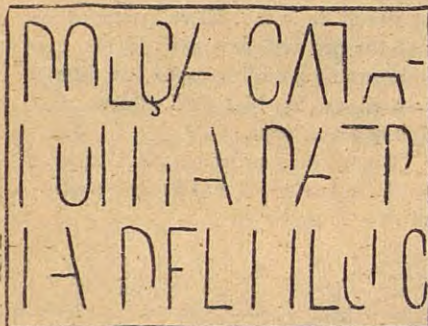 DOLÇA CATA-
LUNYA PATR
IA DEL MEU C